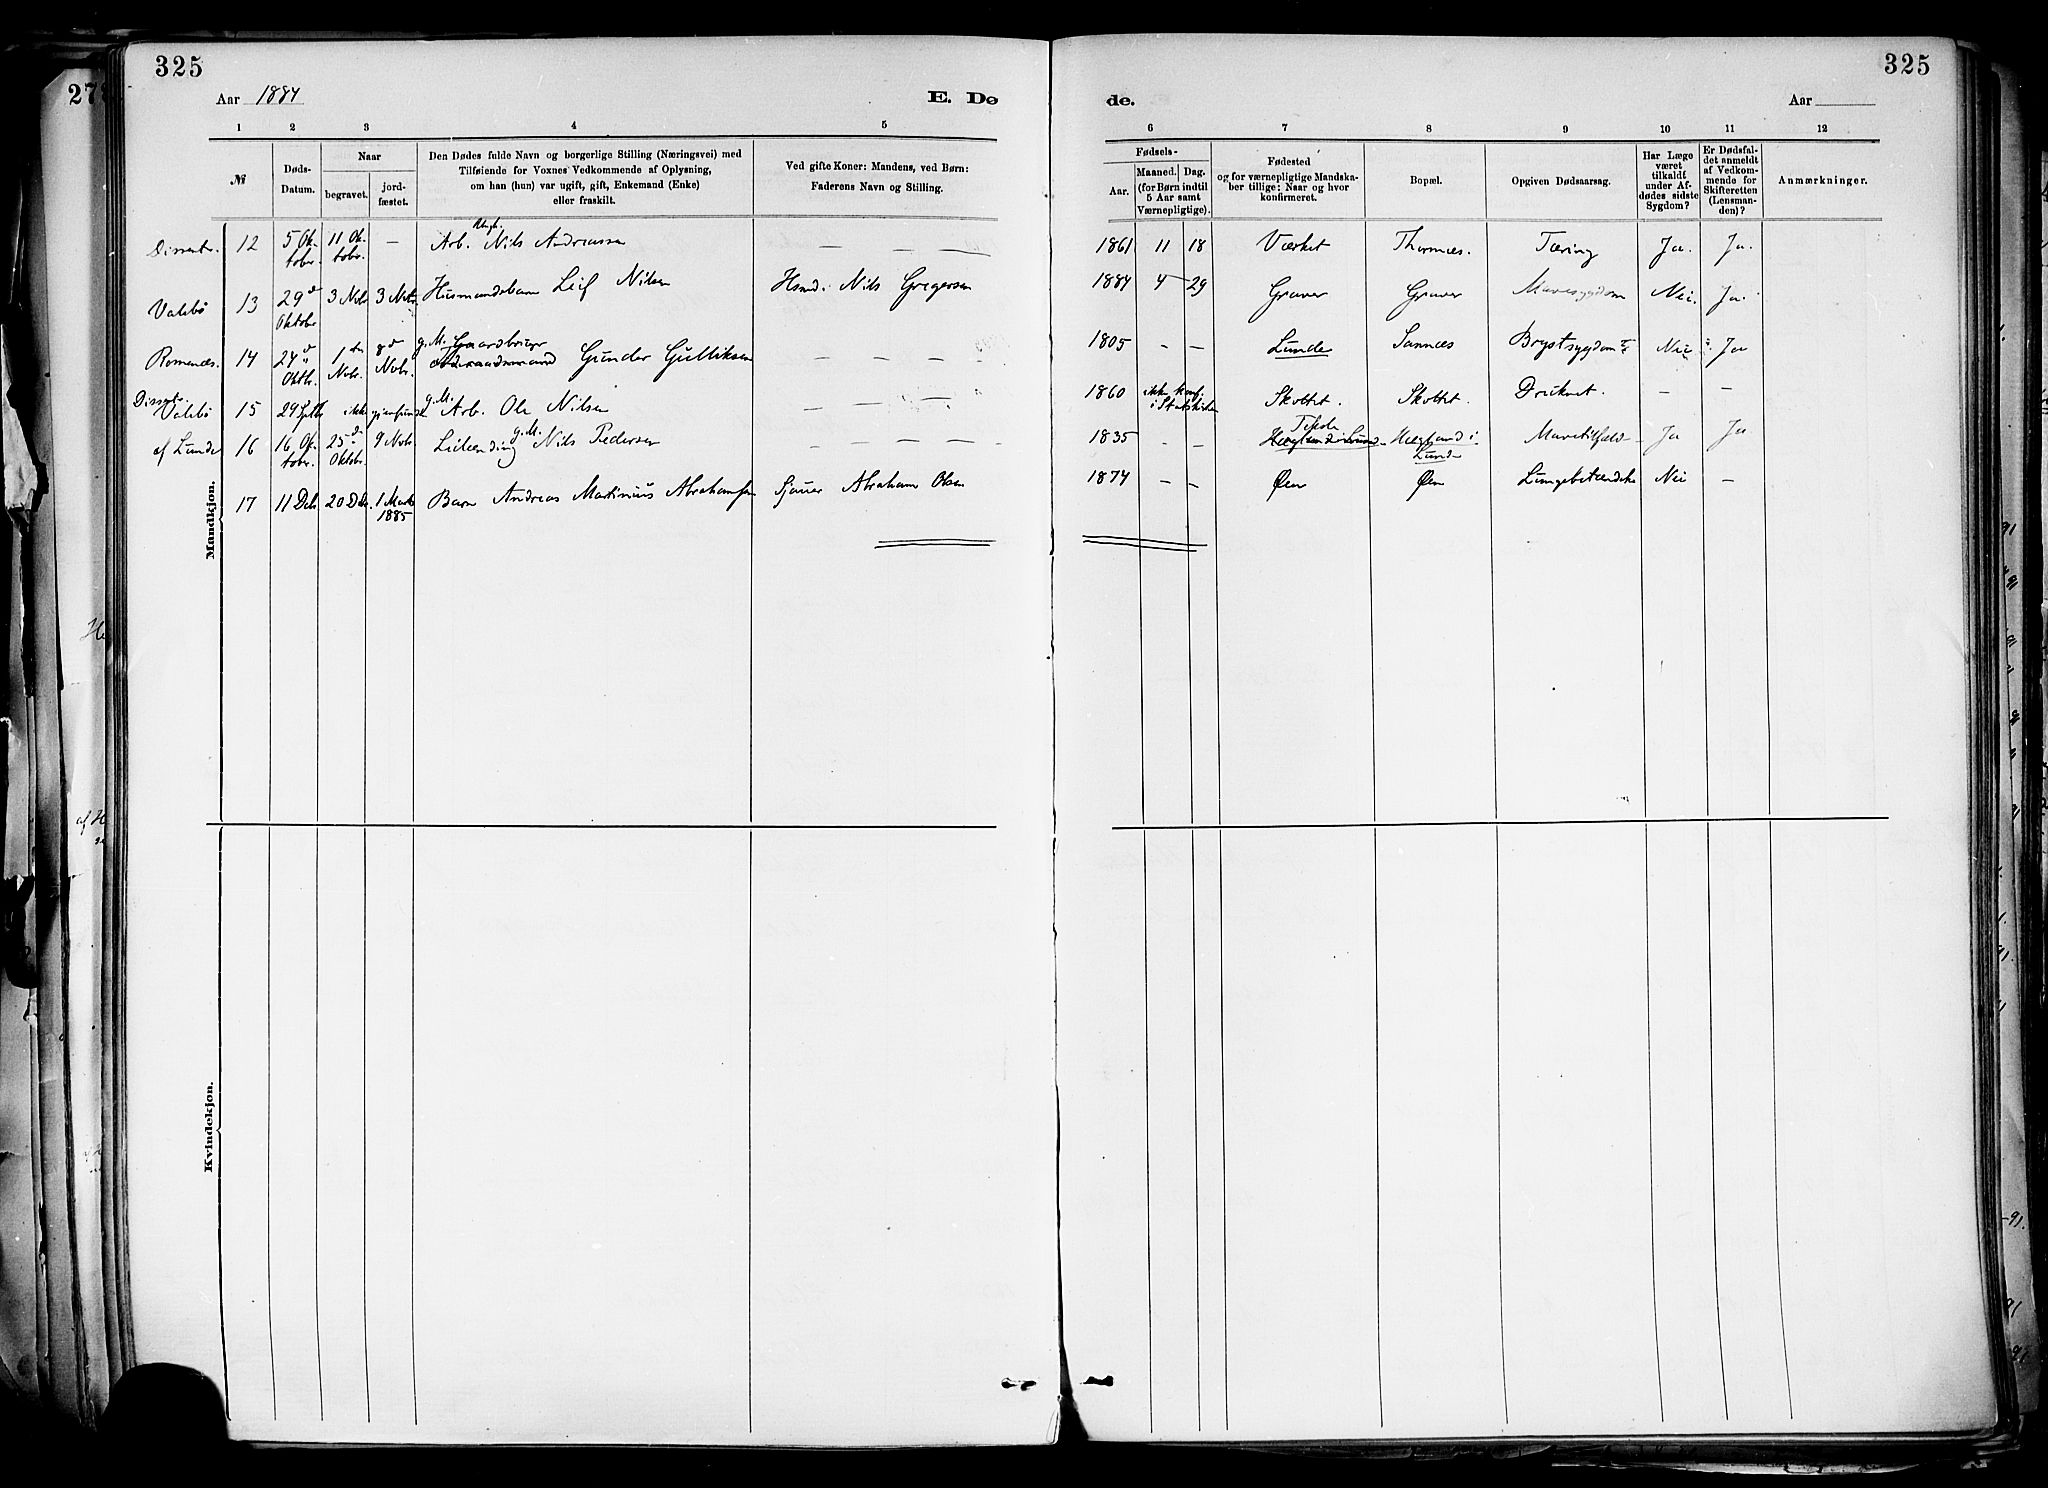 325
325
Aar 1884
E. Dø
de.
Aar
1 2 3 4 5
6 7 8 9 10 11 12
№
Døds-
Datum.
Naar
begravet.
jord-
fæstet.
Den Dødes fulde Navn og borgerlige Stilling (Næringsvei) med
Tilføiende for Voxnes Vedkommende af Oplysning,
om han (hun) var ugift, gift, Enkemand (Enke)
eller fraskilt.
Ved gifte Koner: Mandens, ved Børn:
Faderens Navn og Stilling.
Fødsels-
Aar.
Maaned. Dag.
(for Børn indtil
5 Aar samt
Værnepligtige).
Fødested
og for værnepligtige Mandska-
ber tillige: Naar og hvor
konfirmeret.
Bopæl.
Opgiven Dødsaarsag.
Har Læge
været
tilkaldt
under Af-
dødes sidste
Sygdom?
Er Dødsfal-
det anmeldt
af Vedkom-
mende for
Skifteretten
(Lensman-
den)?
Anmærkninger.
Dissentr. 12 5 Ok-tobr. 11 Ok-tobr. — Arb. Ungk. Nils Andreassen — — — — 1861 11 18 Værket Thornæs. Tæring Ja. Ja.
Valebø 13 29de Oktobr 3 Nobr 3 Nobr Husmandsbarn Leif Nilsen Husmd. Nils Gregersen 1884 4 29 Graver Graver Mavesygdom Nei. Ja.
Romenæs. 14 24de Oktbr. 1ste Nobr. 8de Nobr. g. M. Gaardbruger Gunder Gulliksen — — — — 1805 — — Lunde Sannæs Brystsygdom Nei Ja
Dissentr. Valebø 15 29 ikke g. M. Arb. Ole Nilsen — — — — 1860 ikke konf. i Statskirken Skottet. Skottet. Druknet. — —
af Lunde 16 16 Ok-tobr. 25de Oktobr. 9 Nobr. Leilending g. M. Nils Pedersen — — — — 1835 — — Hægland i Lunde Mavetilfælde Ja Ja
17 11 Dcbr 20 Dcbr. 1 Marts 1885 Barn Andreas Martinius Abrahamsen Sjauer Abraham Olsen 1874 — — Øen Øen Lungebetændelse Nei —
Mandkjøn.
Kvindekjøn.